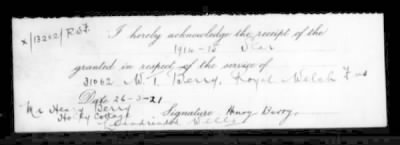 x/13202/R.W.F.
I hereby acknowledge the receipt of the
1914-15 Star
granted in respect of the service of
31062 W. T. Berry, Royal Welch Fus
Date 26-3-21.
Signature Henry Berry.
Mr Henry Berry
Cottage
Llandrindod Wells